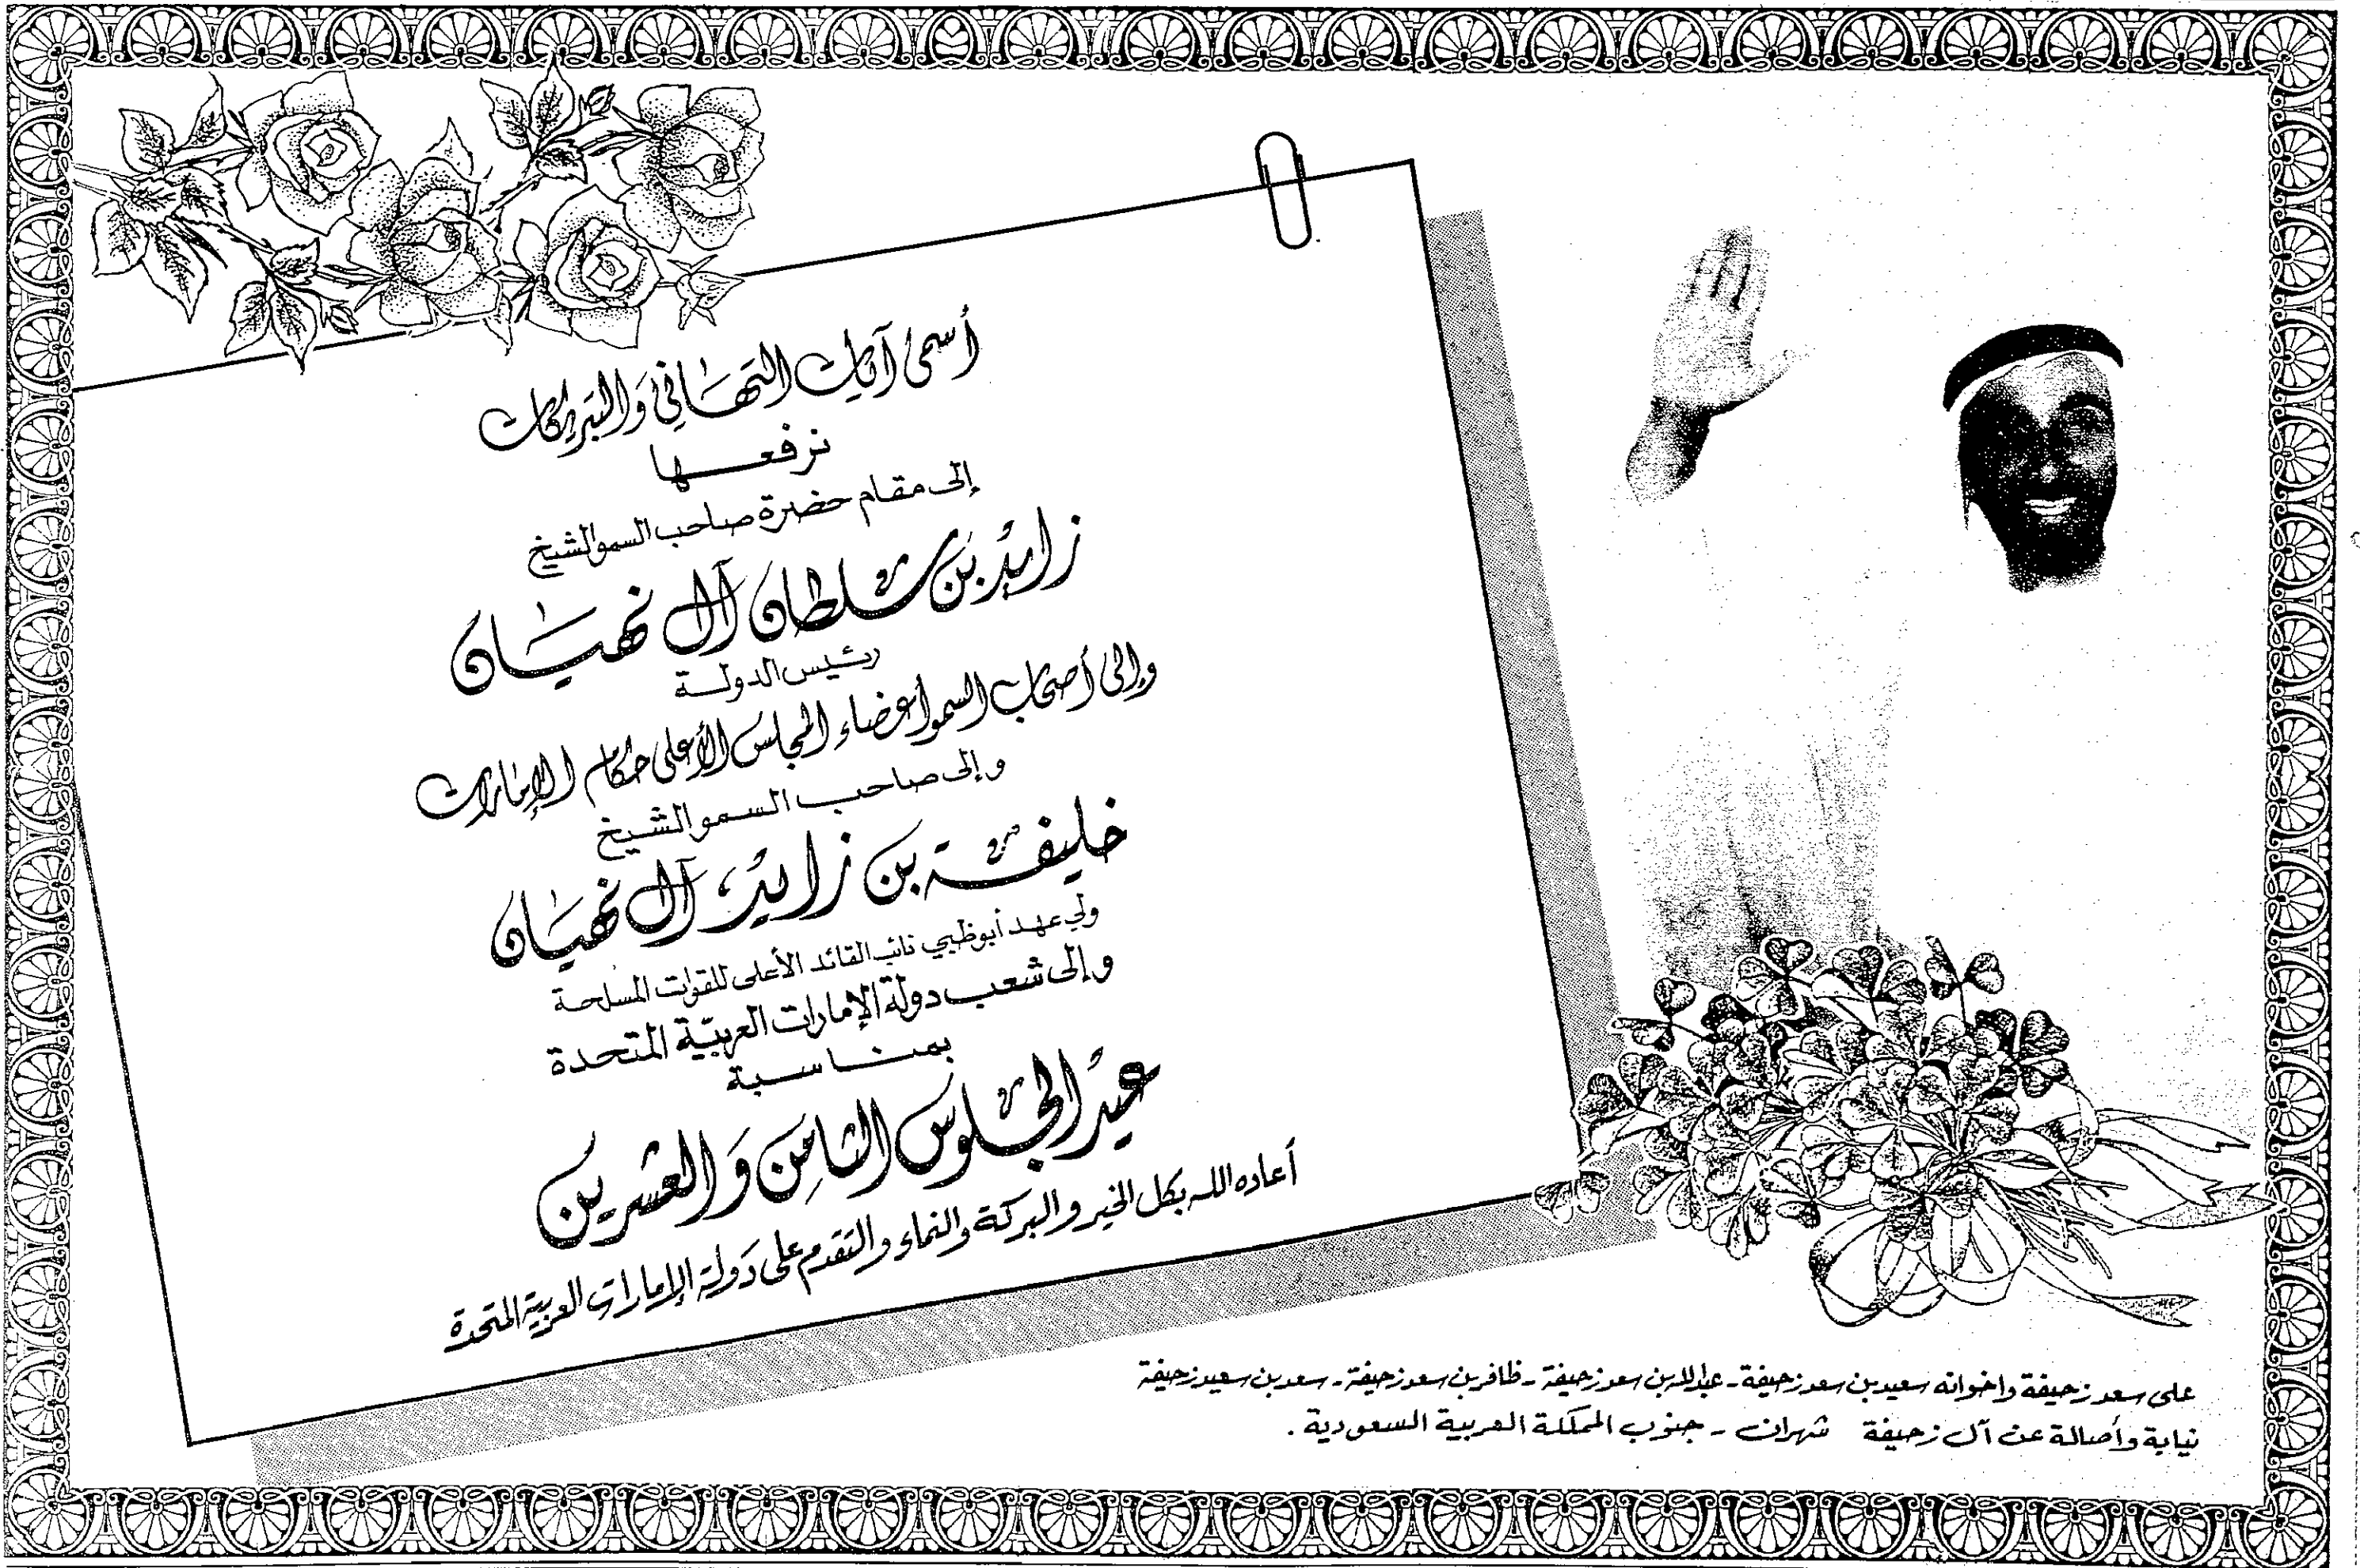 أسمى آيات التهاني والتبريكات
نرفعها
إلى مقام حضرة صاحب السمو الشيخ
زايد بن سلطان آل نهيان
رئيس الدولة
وإلى أصحاب السمو أعضاء المجلس الأعلى حكام الإمارات
وإلى صاحب السمو الشيخ
خليفة بن زايد آل نهيان
ولي عهد أبوظبي نائب القائد الأعلى للقوات المسلحة
وإلى شعب دولة الإمارات العربية المتحدة
بمناسبة
عيد الجلوس الثامن والعشرين
أعاده الله بكل الخير والبركة والنماء والتقدم على دولة الإمارات العربية المتحدة
على سعد زحيفة واخوانه سعيد بن سعد زحيفة - عبدالله بن سعد زحيفة - ظافر بن سعد زحيفة - سعد بن سعيد زحيفة
نيابة وأصالة عن آل زحيفة شهران - جنوب المملكة العربية السعودية .